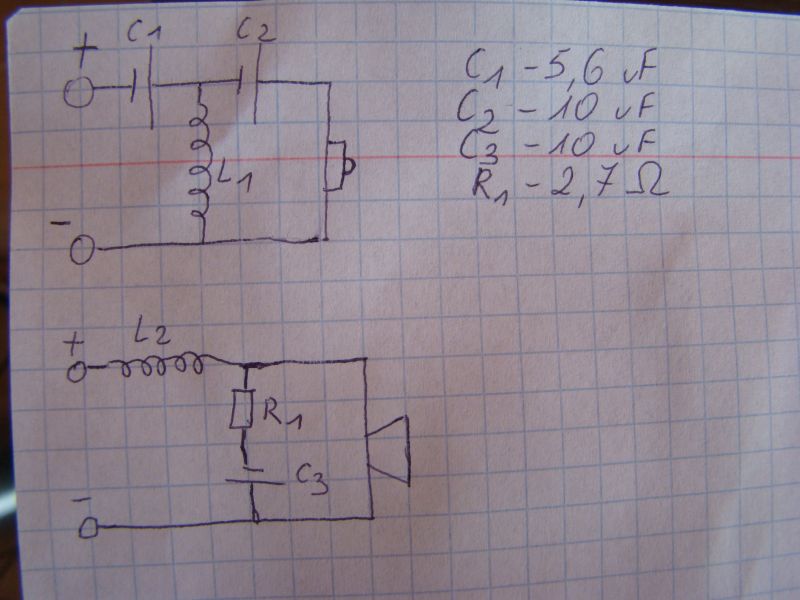 + C1 C2
L1
-
C1 - 5,6 uF
C2 - 10 uF
C3 - 10 uF
R1 - 2,7 Ω
+ L2
R1
C3
-